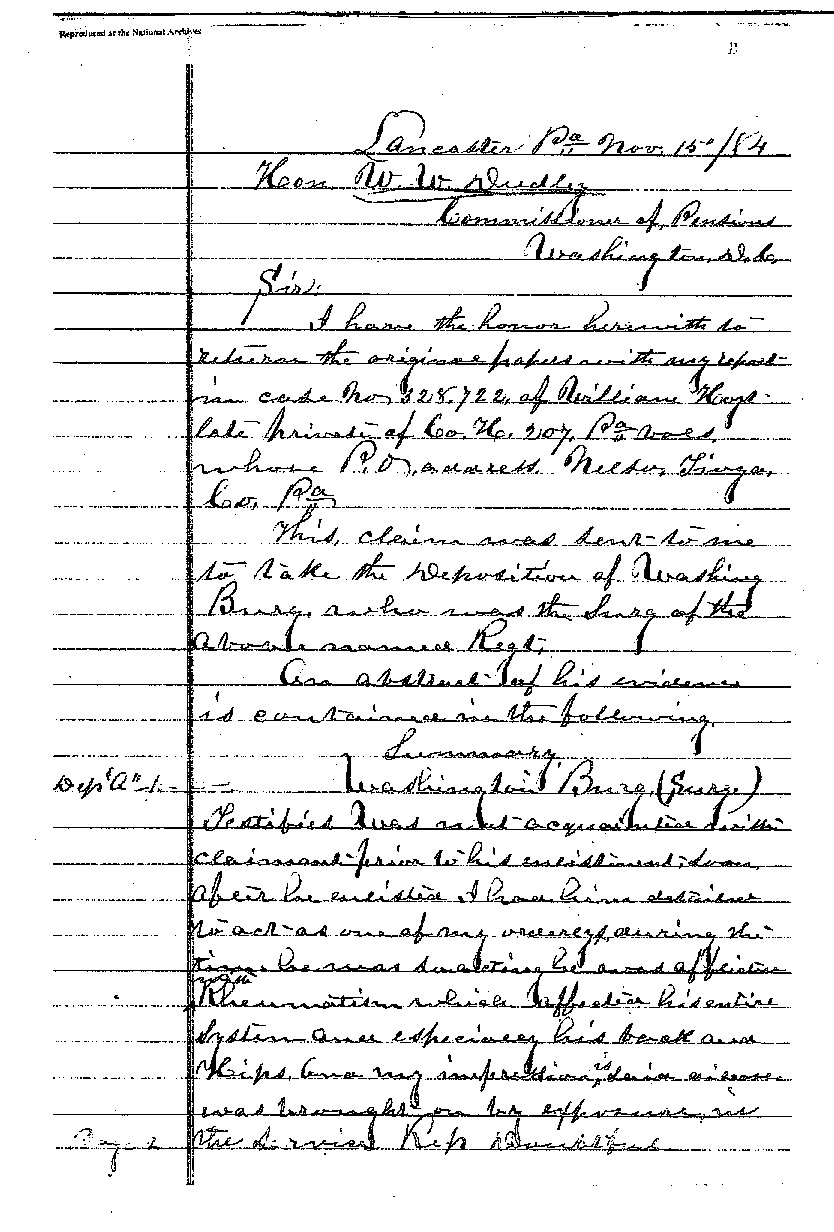 Reproduced at the National Archives
Lancaster Pa Nov. 15"/84
Hon W. W. Dudley
Commissioner of Pensions
Washington, D.C.
Sir:
I have the honor herewith to
return the original papers with my report
in case No 328.722, of William Hoyt
late private of Co. H. 207, Pa Vols,
whose P.O. address Nelson, Tioga,
Co, Pa
This, claim was sent to me
to take the Deposition of Washing
Burg, who was the Surg of the
above named Regt;
An abstract of his evidence
is contained in the following,
Summary,
Dep "A" 1. Washington Burg, (Surge)
Testified I was not acquainted with
claimant prior to his enlistment; soon,
after he enlisted I had him detailed
to act as one of my during the
time he was so acting he was afflicted
with
Rheumatism which affected his entire
system and especially his back and
Hips, And my impression, is said disease
was brought on by exposure, in
Page 2 the Service Rep Doubtful